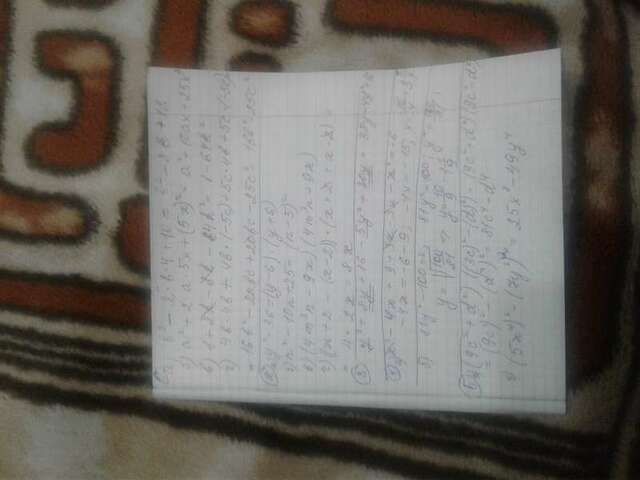 а) b² - 2·b·4 + 16 = b² - 8b + 16
б) a² + 2·a·5x + (5x)² = a² + 10ax + 25x²
в) 1 + 8k - 8k - 64k² = 1 - 64k²
г) 4b·4b + 4b·(-5c) + 5c·4b + 5c·(-5c)
= 16b² - 20bc + 20bc - 25c² = 16b² - 25c²
y² - 36 = (y-6)·(y+6)
б) n² - 10n + 25 = (n-5)²
в) (4m²n - 9x)(4m²n + 9x)
г) (x + 2 - (x-2))·(x + 2 + x - 2) =
= 4·2x = 8x
③ y² + 8y + 16 - 5y² + 30y =
④ - 4x + 9 + 3x - 3x - x² = -6
-4x = -6 - 9; -4x = -15;
б) 81y² - 100 = 0; 81y² = 100; y² =
y = √100/81 ⇒ y = 10/9 = 1 1/9
⑤ (9c² + d²)((3c)² - (d)²) = (9c² + d²)(9c² - d²)
= (9c²)² - (d²)² = 81c⁴ - d⁴
(5x⁴)² - (7y²)² = 25x⁸ - 49y⁴